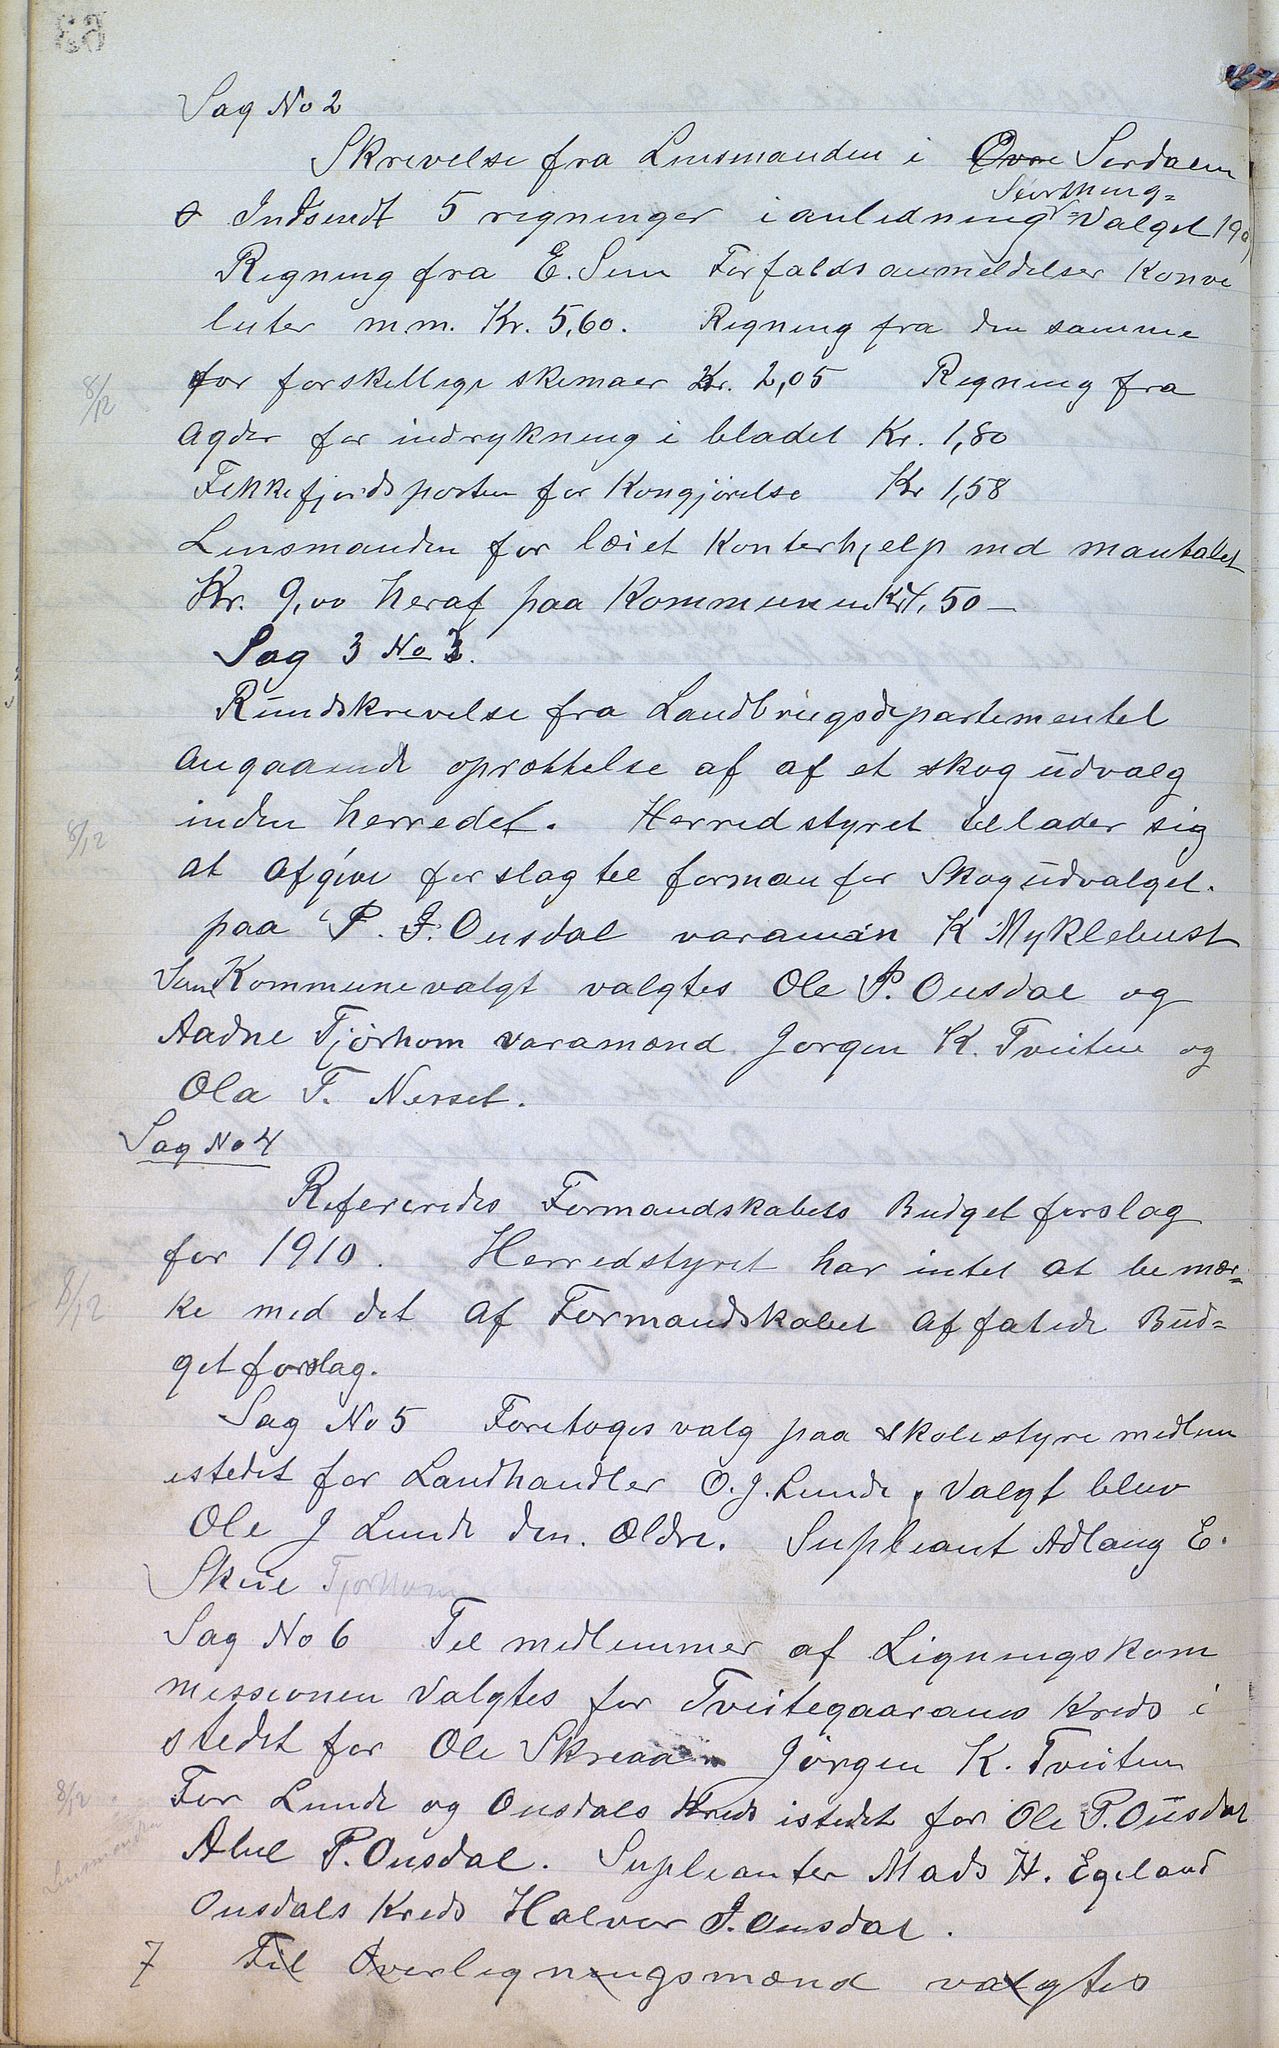 63
Sag No 2
Skrivelse fra Lensmanden i Øvre Serdalen
Storthing=
& Indsendt 5 regninger i anledning Valget 190
Regning fra E. Seim Forfaldsanmeldelser Konvo
luter m.m. Kr. 5,60. Regning fra den samme
for forskellige skemaer Kr. 2,05 Regning fra
8/12
Agder for indrykning i bladet Kr. 1,80
Fekkefjordsposten for Kongjørelse Kr 1,58
Lensmanden for læiet Konterhjelp med mantallet
Kr. 9,00 heraf paa Kommunen Kr 4,50 —
Sag 3 No 3.
Rundskrivelse fra Landbrugsdepartementet
angaaende oprættelse af af et skogudvalg
inden herredet. Herredstyret tillader sig
8/12
at afgive forslag til forman for Skogudvalget.
paa P. J. Ousdal varaman K Myklebust
Som Kommunevalgt valgtes Ole P. Ousdal og
Aadne Tjørhom varamænd Jørgen K. Tveiten og
Ola T. Nesset.
Sag No 4
Refereredes Formandskabets Budgetforslag
for 1910. Herredstyret har intet at bemær=
8/12
ke med det af Formandskabet affatede Bud=
getforslag.
Sag No 5 Foretoges valg paa skolestyremedlem
istedet for Landhandler O. J. Lunde, Valgt blev
Ole J Lunde den. Ældre. Supleant Adlaug E.
Skeie Tjorhom
Sag No 6 Til medlemmer af Ligningskom
missionen Valgtes for Tveitegaaranes Kreds i
stedet for Ole Skreaa Jørgen K. Tveiten
8/12
For Lunde og Ousdals Kreds istedet for Ole P. Ousdal
Lensmanden
Abel P. Ousdal. Supleanter Mads H. Egeland
Ousdals Kreds Halvor J. Ousdal.
7 Til Overligningsmænd valgtes